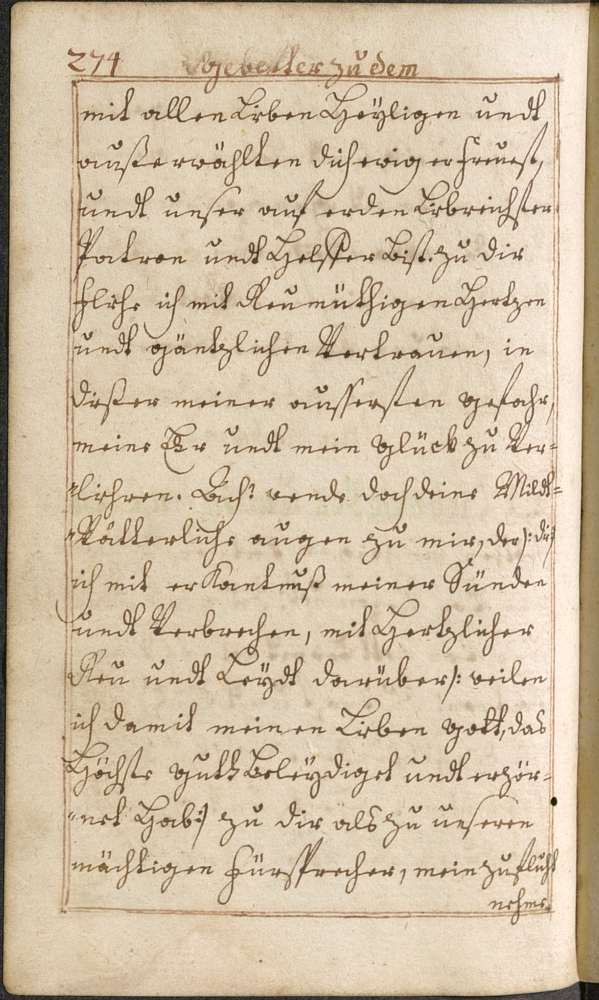 274 Gebetter zu dem
mit allen Lieben Heÿligen undt
außerwählten dich ewig erfreuest,
undt unser auf erden Liebreichster
Patron undt Helffer bist. zu dir
fliehe ich mit Reumüthigen Hertzen
undt gäntzlichen Vertrauen, in
dießer meiner aussersten gefahr,
meine Ehr undt mein glück zu Ver-
"liehren. Ach! wende doch deine Mildt-
"Vätterliche augen zu mir, der /: die
ich mit erkantnuß meiner Sünden
undt Verbrechen, mit Hertzlicher
Reu undt Leÿdt darüber /: weilen
ich damit meinen Lieben gott, das
Höchste guth Beleÿdiget undt erzör-
"net Hab :/ zu dir als zu unseren
mächtigen Fürsprecher, mein zuflucht
nehme.